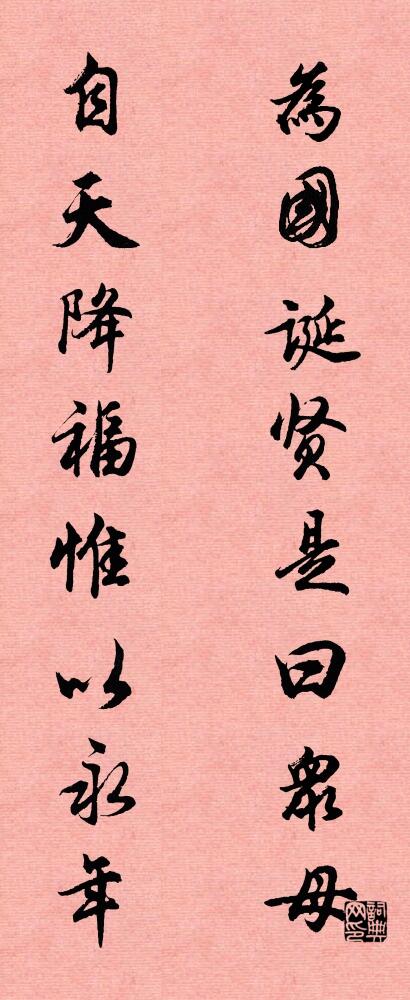 為國誕贤是曰衆母
自天降福惟以永年
詞典网印